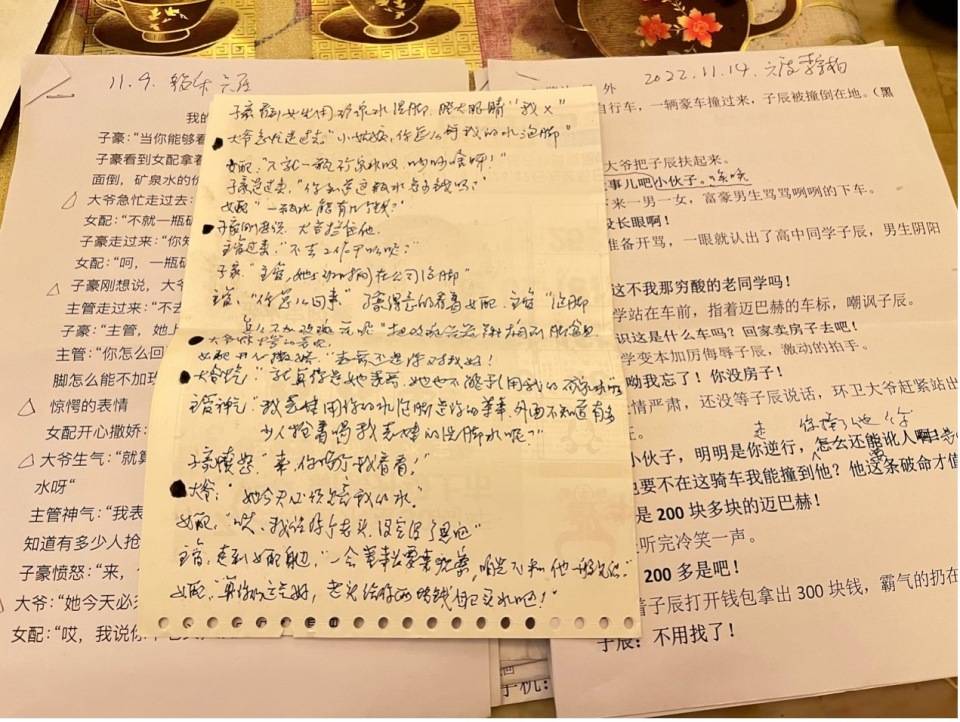 11.9.
我的
子豪:“当你能够看
子豪看到女配拿着
面倒,矿泉水的价
大爷急忙走过去:
女配:“不就一瓶矿
子豪走过来:“你知
女配:“呵,一瓶矿
子豪刚想说,大爷
主管走过来:“不去
子豪:“主管,她上
主管:“你怎么回
脚怎么能不加玫
惊愕的表情
女配开心撒娇:
大爷生气:“就算
水呀”
主管神气:“我表
知道有多少人抢
子豪愤怒:“来,
大爷:“她今天必须
女配:“哎,我说你
子豪看到女生用矿泉水泡脚,瞪大眼睛“我×”
大爷急忙走过去“小姑娘,你怎么拿我的水泡脚”
女配:“不就一瓶矿泉水吗,吵吵啥呀!”
子豪走过来,“你知道这瓶水多少钱吗?”
女配“一瓶水能有几个钱?”
子豪刚想说,大爷拦住他.
主管过来,“不去工作干啥呢?”
子豪“主管,她上班期间在公司泡脚”
主管:“你怎么回事” 子豪得意的看着女配,主管“泡脚
怎么不加玫瑰花呢”
女配开心撒娇“
大爷气“就算你是她
主管神气“我表妹用你的水泡脚是你的荣幸,外面不知道有多
少人抢着喝我表妹的洗脚水呢?”
子豪愤怒“来,你喝个我看看!”
大爷:“她今天必须赔我的水.”
女配,“哎,我说你个老头,没完没了是吧”
主管,走到女配身边,“一会董事长要来视察,咱先不和他一般见识.”
女配,算你运气好,老头给你两块钱自己买水吧!”
2022.11.14.
外
自行车,一辆豪车撞过来,子辰被撞倒在地。(黑
大爷把子辰扶起来。
事儿吧小伙子。咳咳
来一男一女,富豪男生骂骂咧咧的下车。
没长眼啊!
准备开骂,一眼就认出了高中同学子辰,男生阴阳
这不我那穷酸的老同学吗!
学站在车前,指着迈巴赫的车标,嘲讽子辰。
识这是什么车吗?回家卖房子去吧!
学变本加厉侮辱子辰,激动的拍手。
呦我忘了!你没房子!
情严肃,还没等子辰说话,环卫大爷赶紧站出
走 你撞了他 你
小伙子,明明是你逆行,怎么还能讹人
他要不在这骑车我能撞到他?他这条破命才值
是 200 块多块的迈巴赫!
听完冷笑一声。
200 多是吧!
着子辰打开钱包拿出 300 块钱,霸气的扔在
子辰:不用找了!
手机: